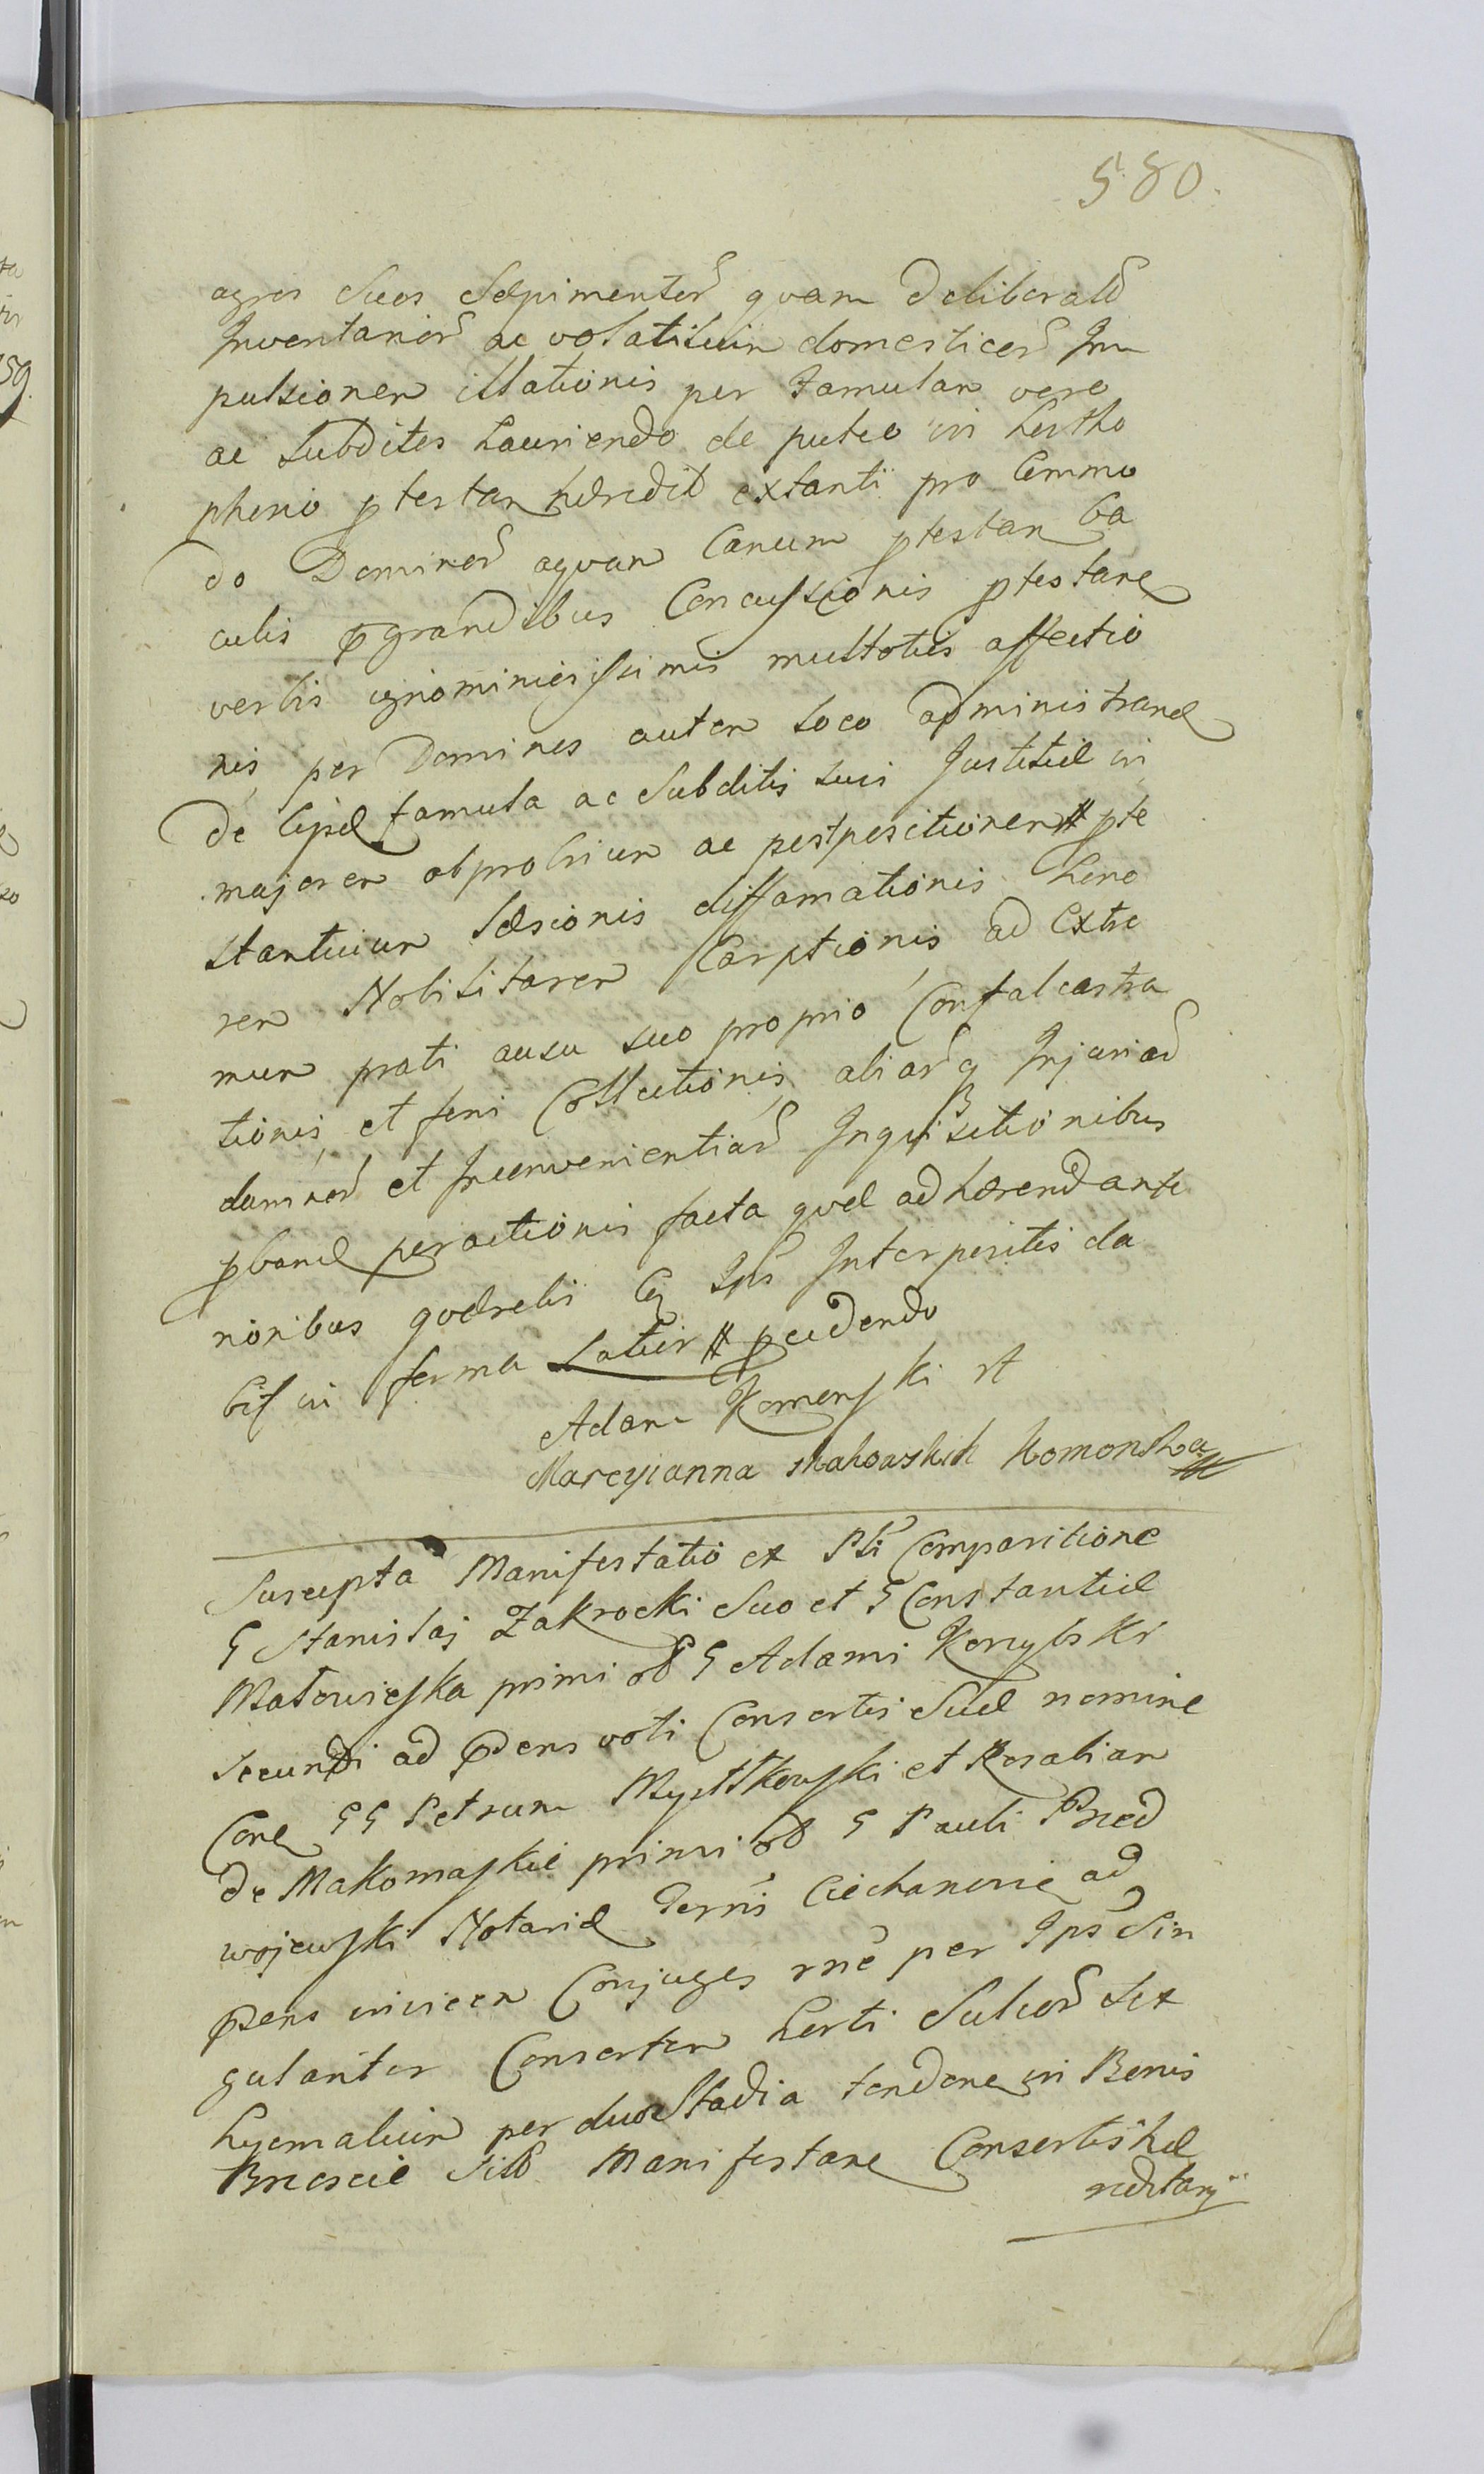 580.
agros Suos Sæpimentor quam deliberatæ
Inventarior ac volatilium domesticor Im
pulsionem illationis per Famulam vero
ac Subditos hauriendo de puteo in hortho
phino ptestan hæredit extanti pro Commo
do Dominor aquam Canum ptestan ba
culis pgrandibus Concussionis ptestane
verbis ignominiosissimis multotiis affectio
nis, per Dominos autem loco administrand
de Ejsd famula ac Subditis suis Justitiæ in
majorem obprobrium ac postpositionem pte
stantuium Læsionis diffamationis hono
rem Nobilitarem Carptionis ad Extre
mum prati ausu suo proprio Confalcastra
tionis, et feni Collectionis aliarq Injuriar
damnor et Inconvenientiar Inquisitionibus
pband peractionis facta quæ adhærend ante
rioribus quærelis Eq Ips Interpositis da
bit in forma Latiir pcudendo
Adam Komoński st
Marcyianna Makowskich Komonska
Suscepta Manifestatio ex Pli Comparitione
G Stanislai Zakrocki Suo et G Constantiæ
Matowieska primi ol G Adami Korzybski
secundi ad pdens voti Consortis Suæ nomine
Cone GG Petrum Mystkowski et Rosaliam
de Makomaskie primi ol G Pauli Przed
wojewski Notarii Terris Ciechanovie ad
pdens invicem Conjuges rne per Ips Sin
gulariter Consortem horti Sulcor sex
hyemalium per duo Stadia tendene in Bonis
Brzoscie Sitt Manifestane Consortis hæ
reditarii